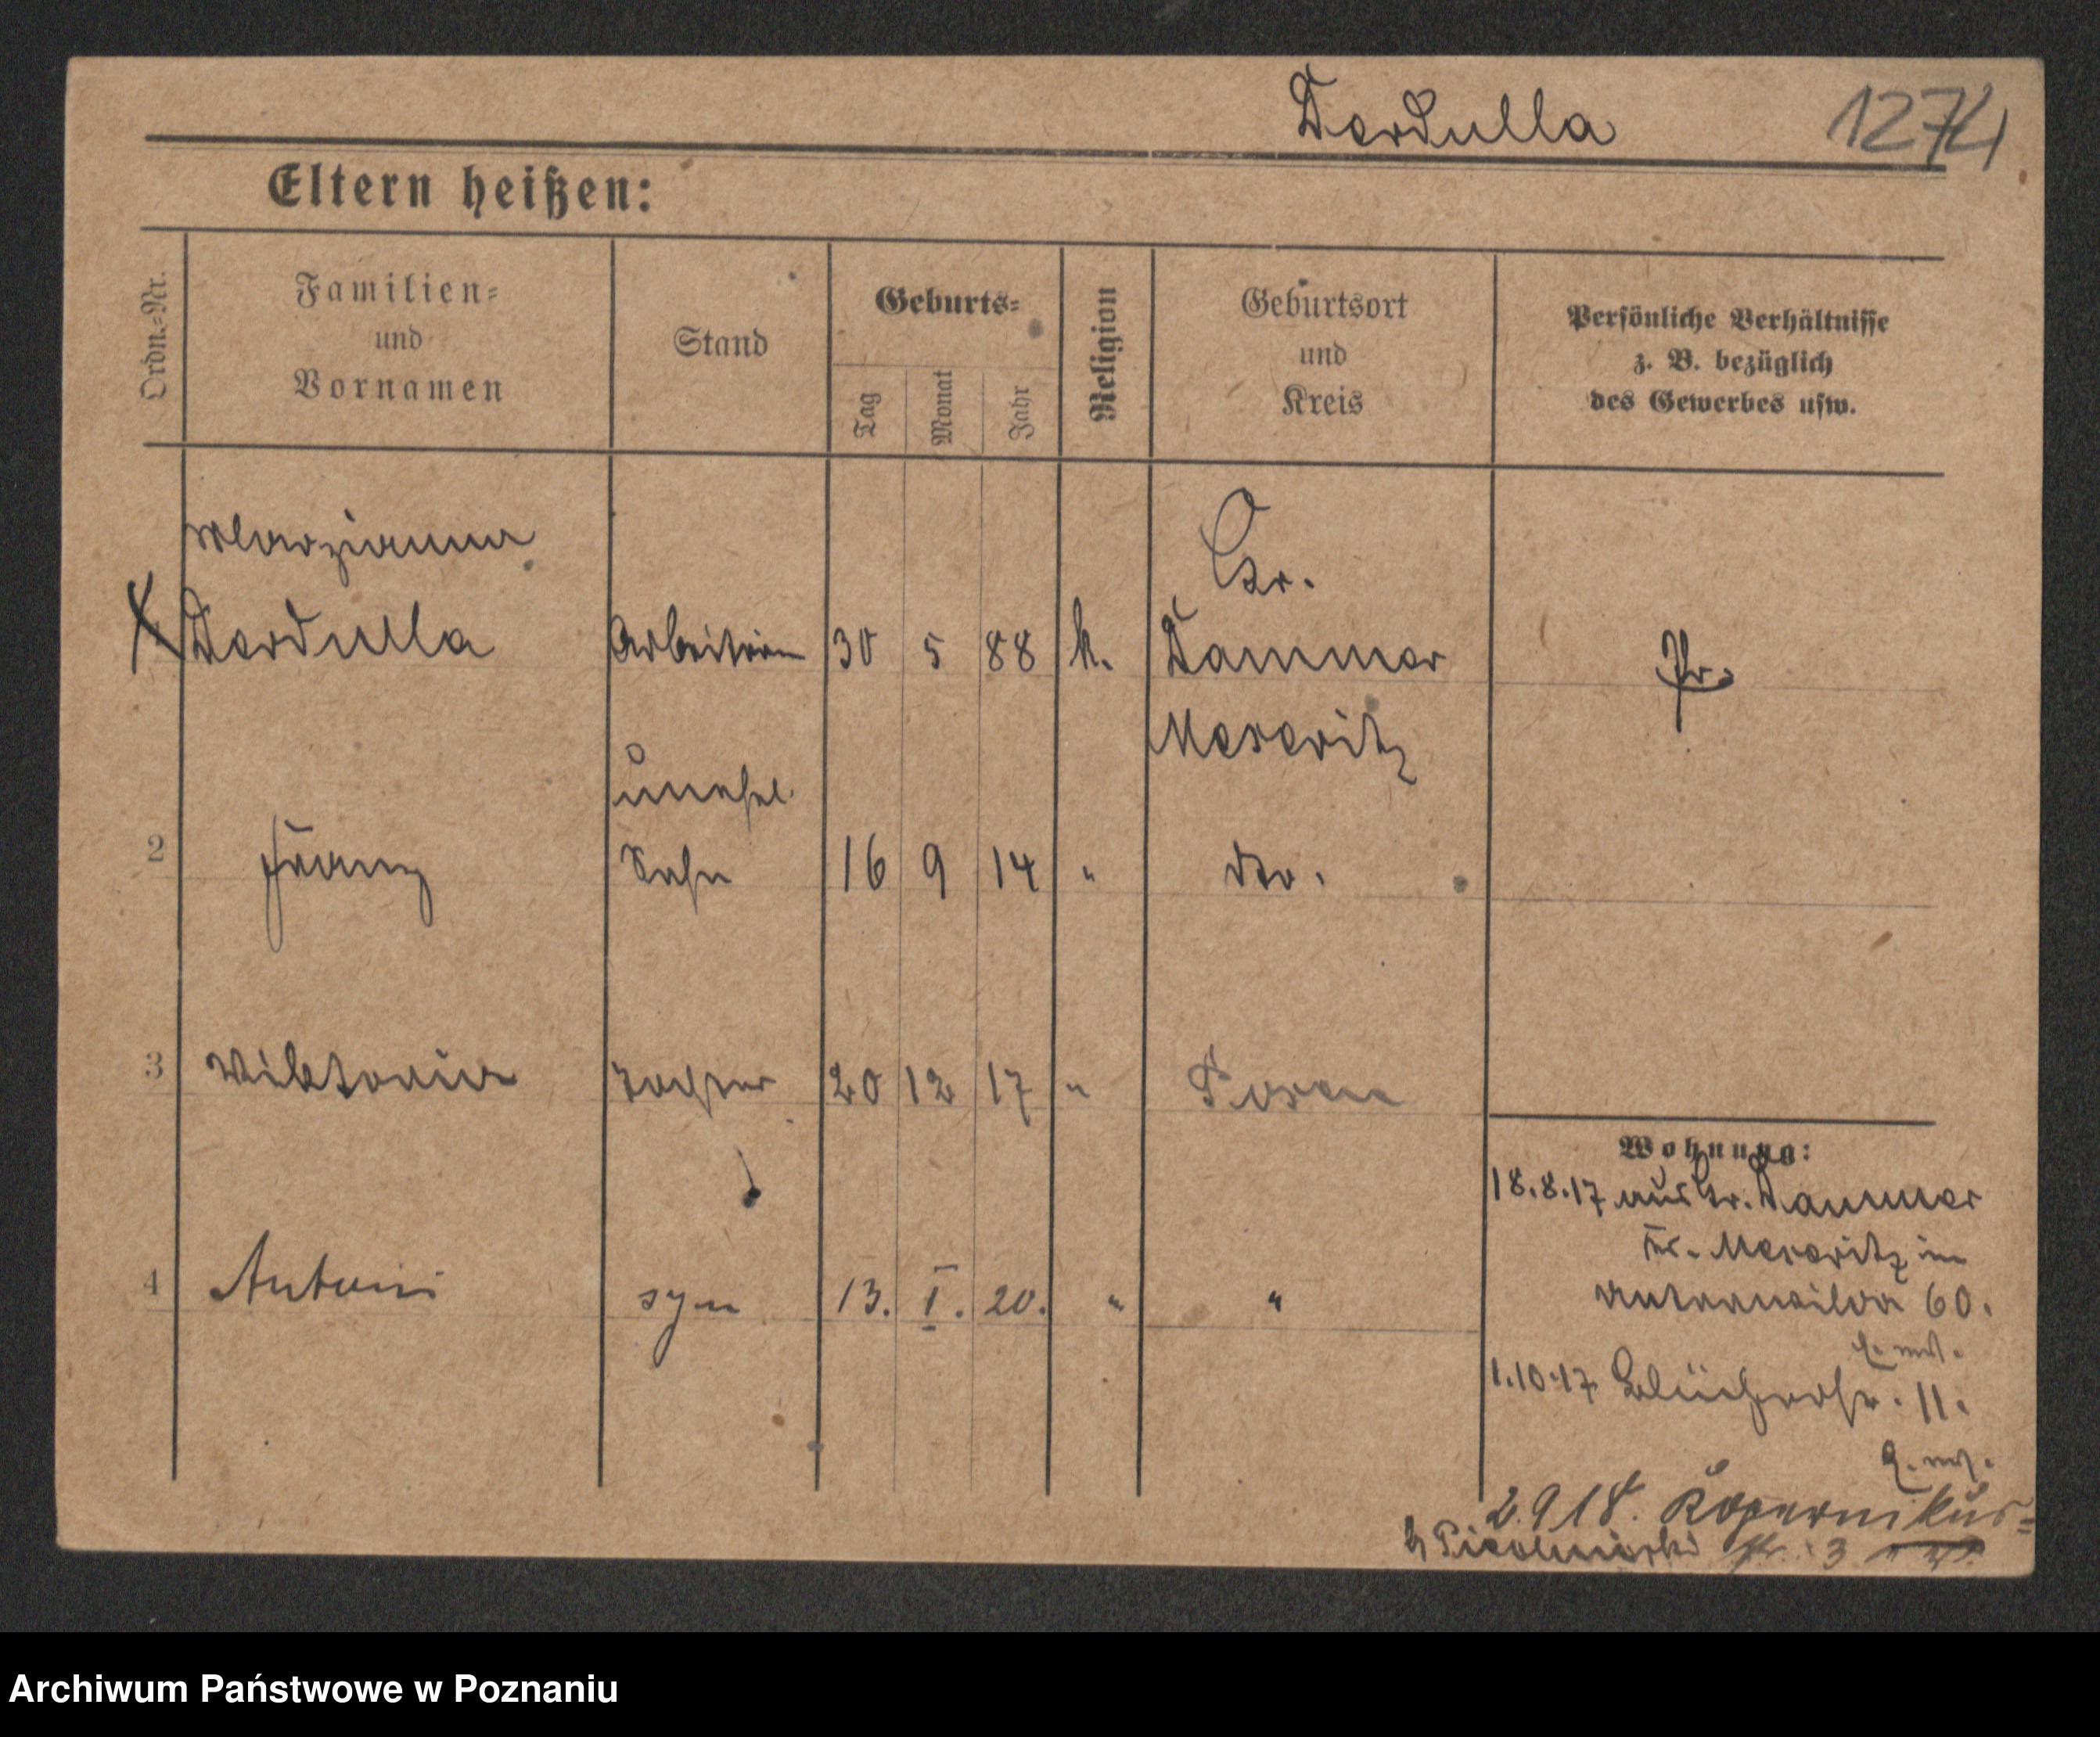 Dordulla 1274
Eltern heißen:
Ordn.=Nr.
Familien=
und
Vornamen
Stand
Geburts=
Tag
Monat
Jahr
Religion
Geburtsort
und
Kreis
Persönliche Verhältnisse
z. B. bezüglich
des Gewerbes usw.
Marzianna Gr.
Dordulla Arbeiterin 30 5 88 k. Dammer Pr.
Meseritz
unehel.
2 Franz Sohn 16 9 14 " dto.
3 Viktoria Tochter 20 12 17 " Posen
4 Antoni syn 13. I. 20. " "
Wohnung:
18.8.17 aus Gr. Dammer
Kr. Meseritz in
60.
1.10.17 Blücherstr. 11.
2.9.18. Kopernikus=
str. 3
Archiwum Państwowe w Poznaniu